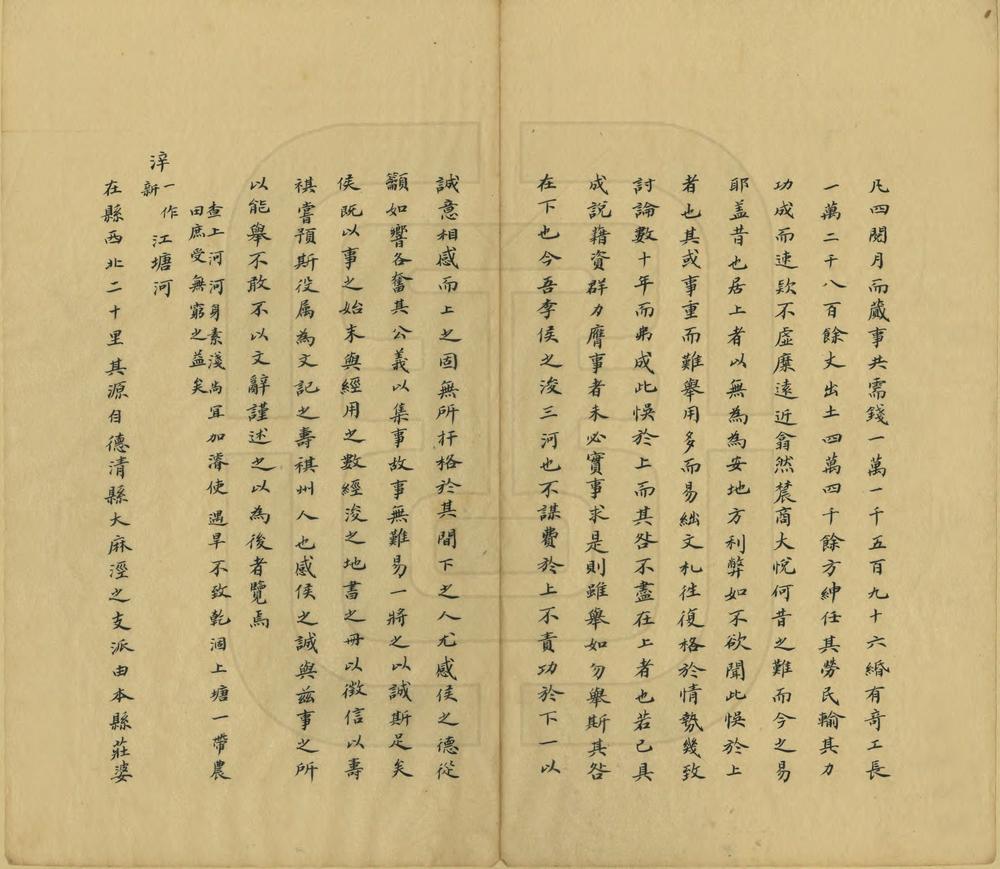 凡四閱月而蕆事共需錢一萬一千五百九十六緡有奇工長
一萬二千八百餘丈出土四萬四千餘方紳任其勞民輸其力
功成而速款不虛糜遠近翕然農商大悅何昔之難而今之易
耶蓋昔也居上者以無為為安地方利弊如不欲聞此悞於上
者也其或事重而難舉用多而易絀文札往復格於情勢幾致
討論數十年而弗成此悞於上而其咎不盡在上者也若已具
成說藉資群力膺事者未必實事求是則雖舉如勿舉斯其咎
在下也今吾李侯之浚三河也不謀費於上不責功於下一以
誠意相感而上之固無所扞格於其間下之人尤感侯之德從
籲如響各奮其公義以集事故事無難易一將之以誠斯足矣
侯既以事之始末與經用之數經浚之地書之冊以徵信以壽
祺嘗預斯役属為文記之壽祺州人也感侯之誠與茲事之所
以能舉不敢不以文辭謹述之以為後者覽焉
查上河河身素淺尚宜加濬使遇旱不致乾涸上塘一帶農
田庶受無窮之益矣
涬一作新江塘河
在縣西北二十里其源自德清縣大麻溼之支派由本縣莊婆